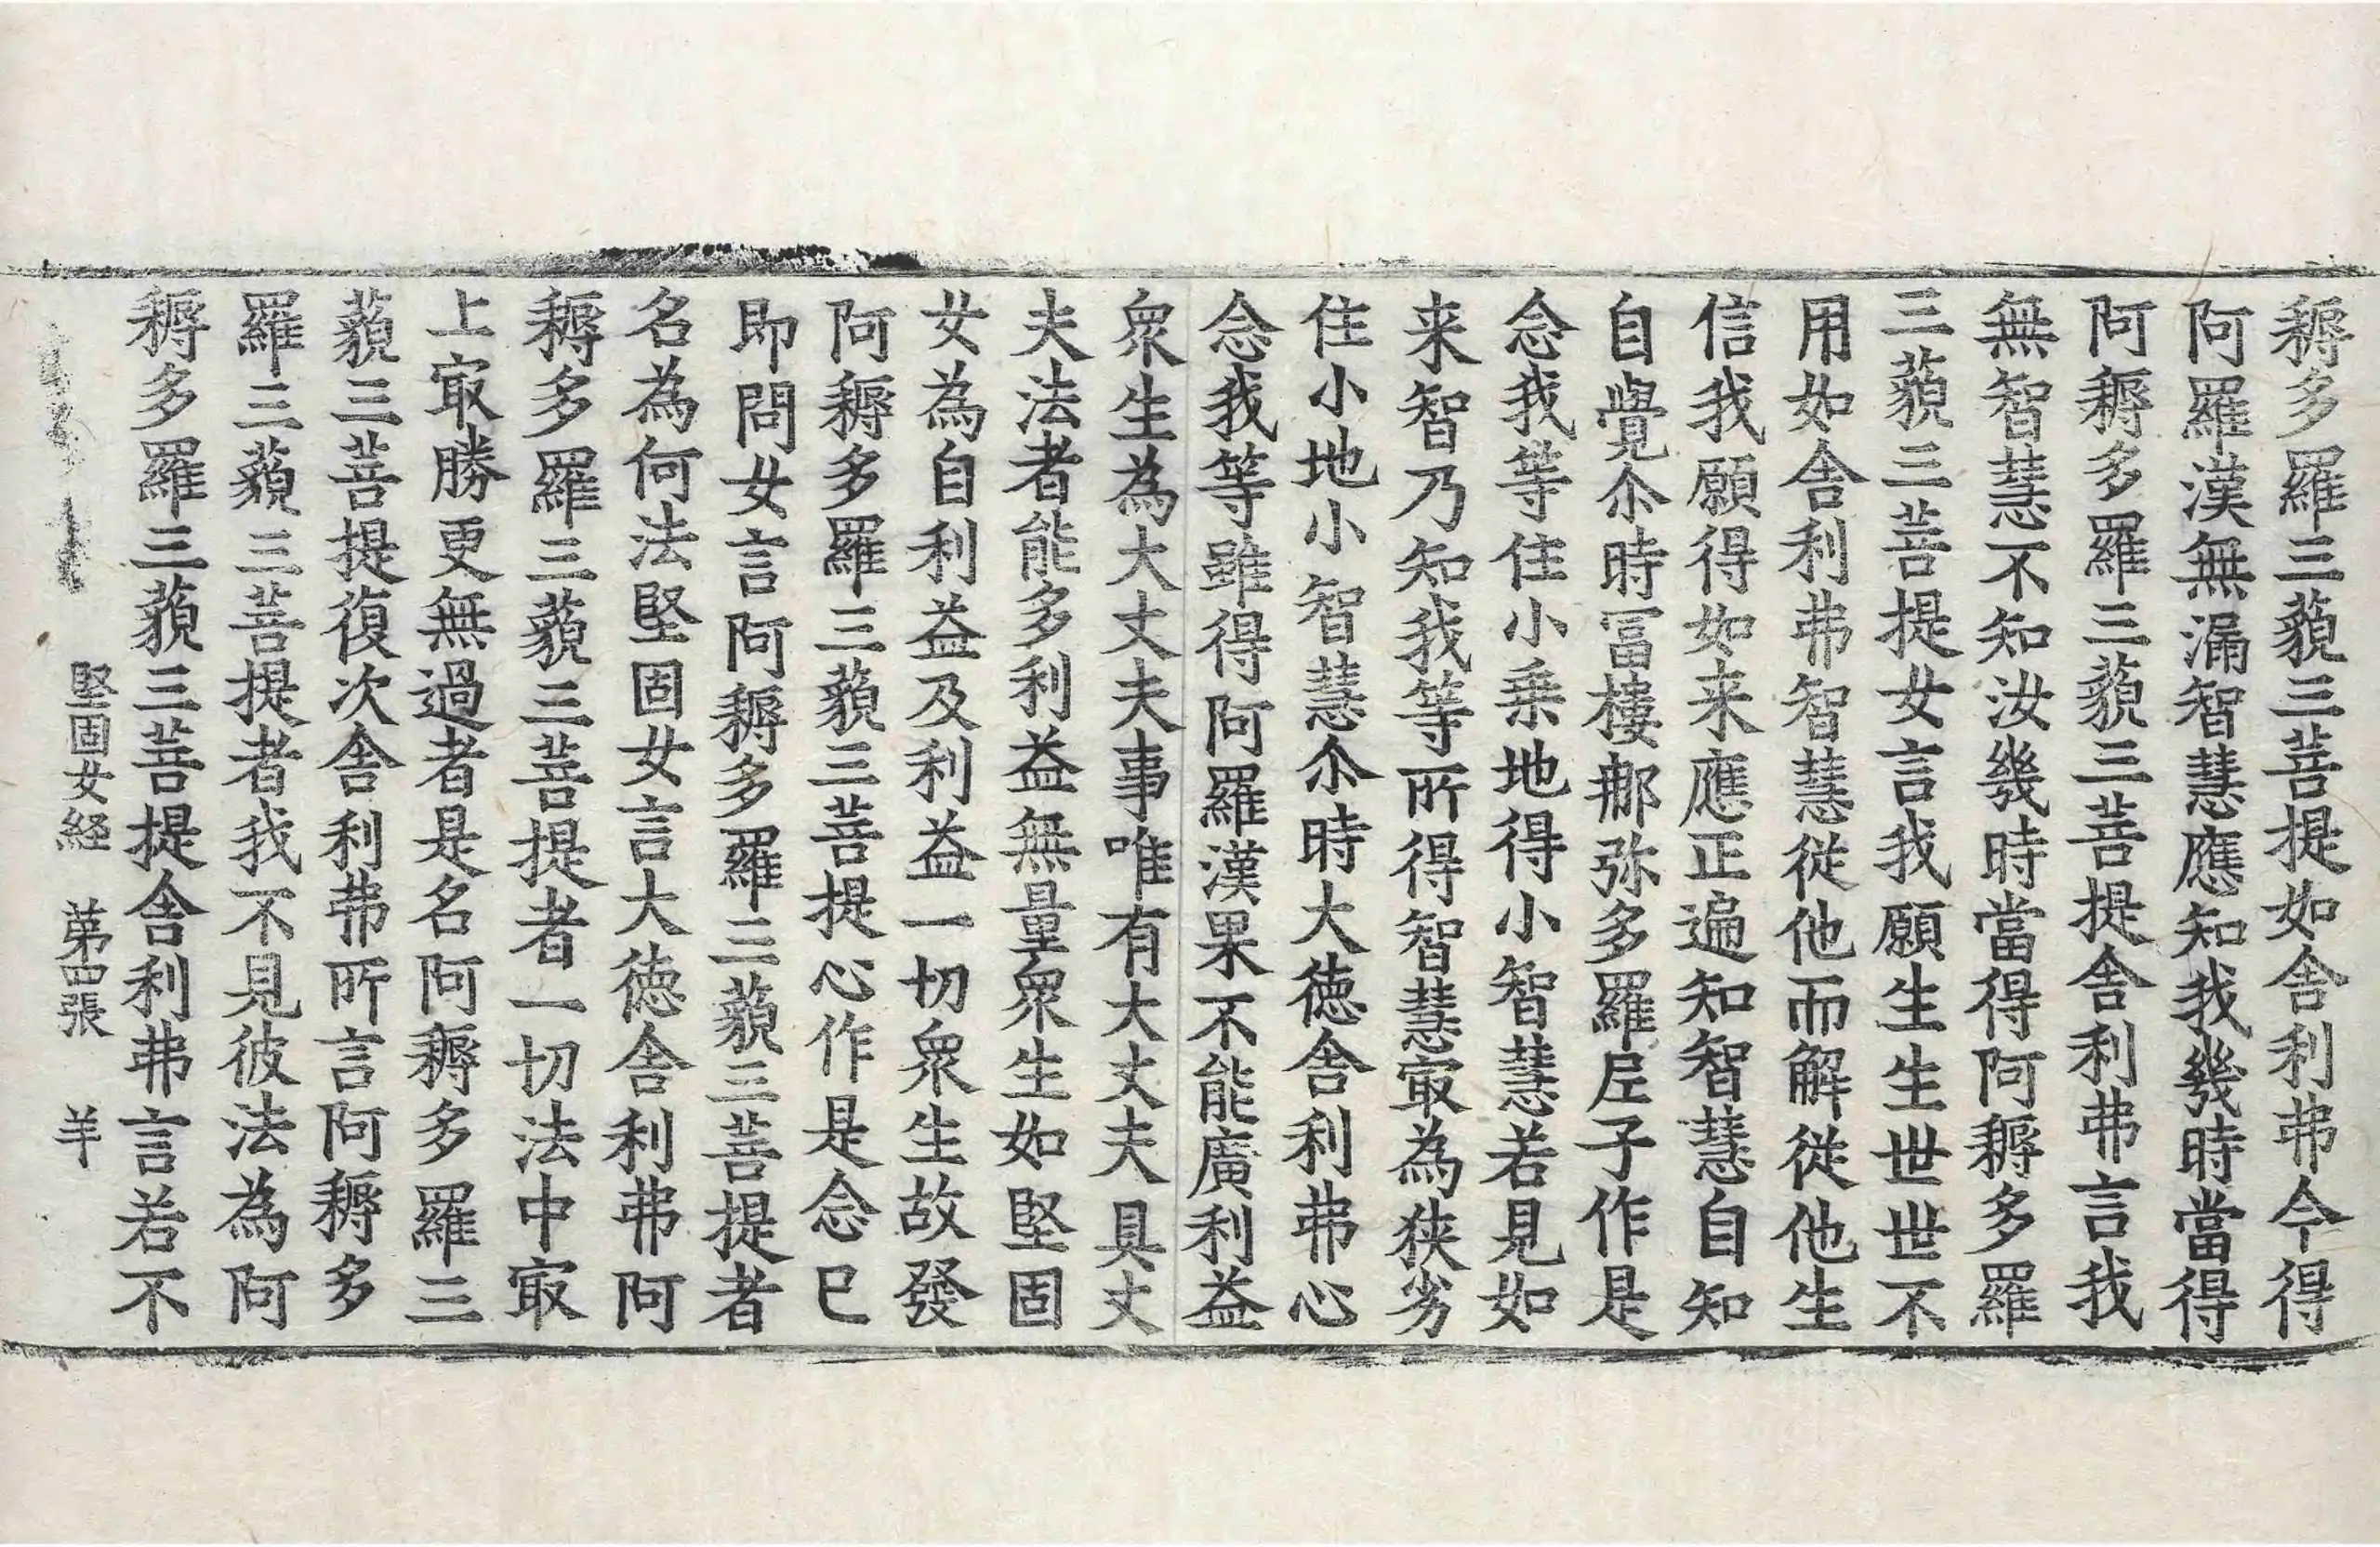 耨多羅三藐三菩提如舍利弗今得
阿羅漢無漏智慧應知我幾時當得
阿耨多羅三藐三菩提舍利弗言我
無智慧不知汝幾時當得阿耨多羅
三藐三菩提女言我願生生世世不
用如舍利弗智慧從他而解從他生
信我願得如来應正遍知智慧自知
自覺尒時冨樓那弥多羅𡰱子作是
念我等住小乗地得小智慧若見如
来智乃知我等所得智慧㝡為狹劣
住小地小智慧尒時大徳舍利弗心
念我等雖得阿羅漢果不能廣利益
衆生為大丈夫事唯有大丈夫具丈
夫法者能多利益無量衆生如堅固
女為自利益及利益一切衆生故發
阿耨多羅三藐三菩提心作是念已
即問女言阿耨多羅三藐三菩提者
名為何法堅固女言大徳舍利弗阿
耨多羅三藐三菩提者一切法中㝡
上㝡勝更無過者是名阿耨多羅三
藐三菩提復次舍利弗所言阿耨多
羅三藐三菩提者我不見彼法為阿
耨多羅三藐三菩提舍利弗言若不
堅固女経 第四張 羊